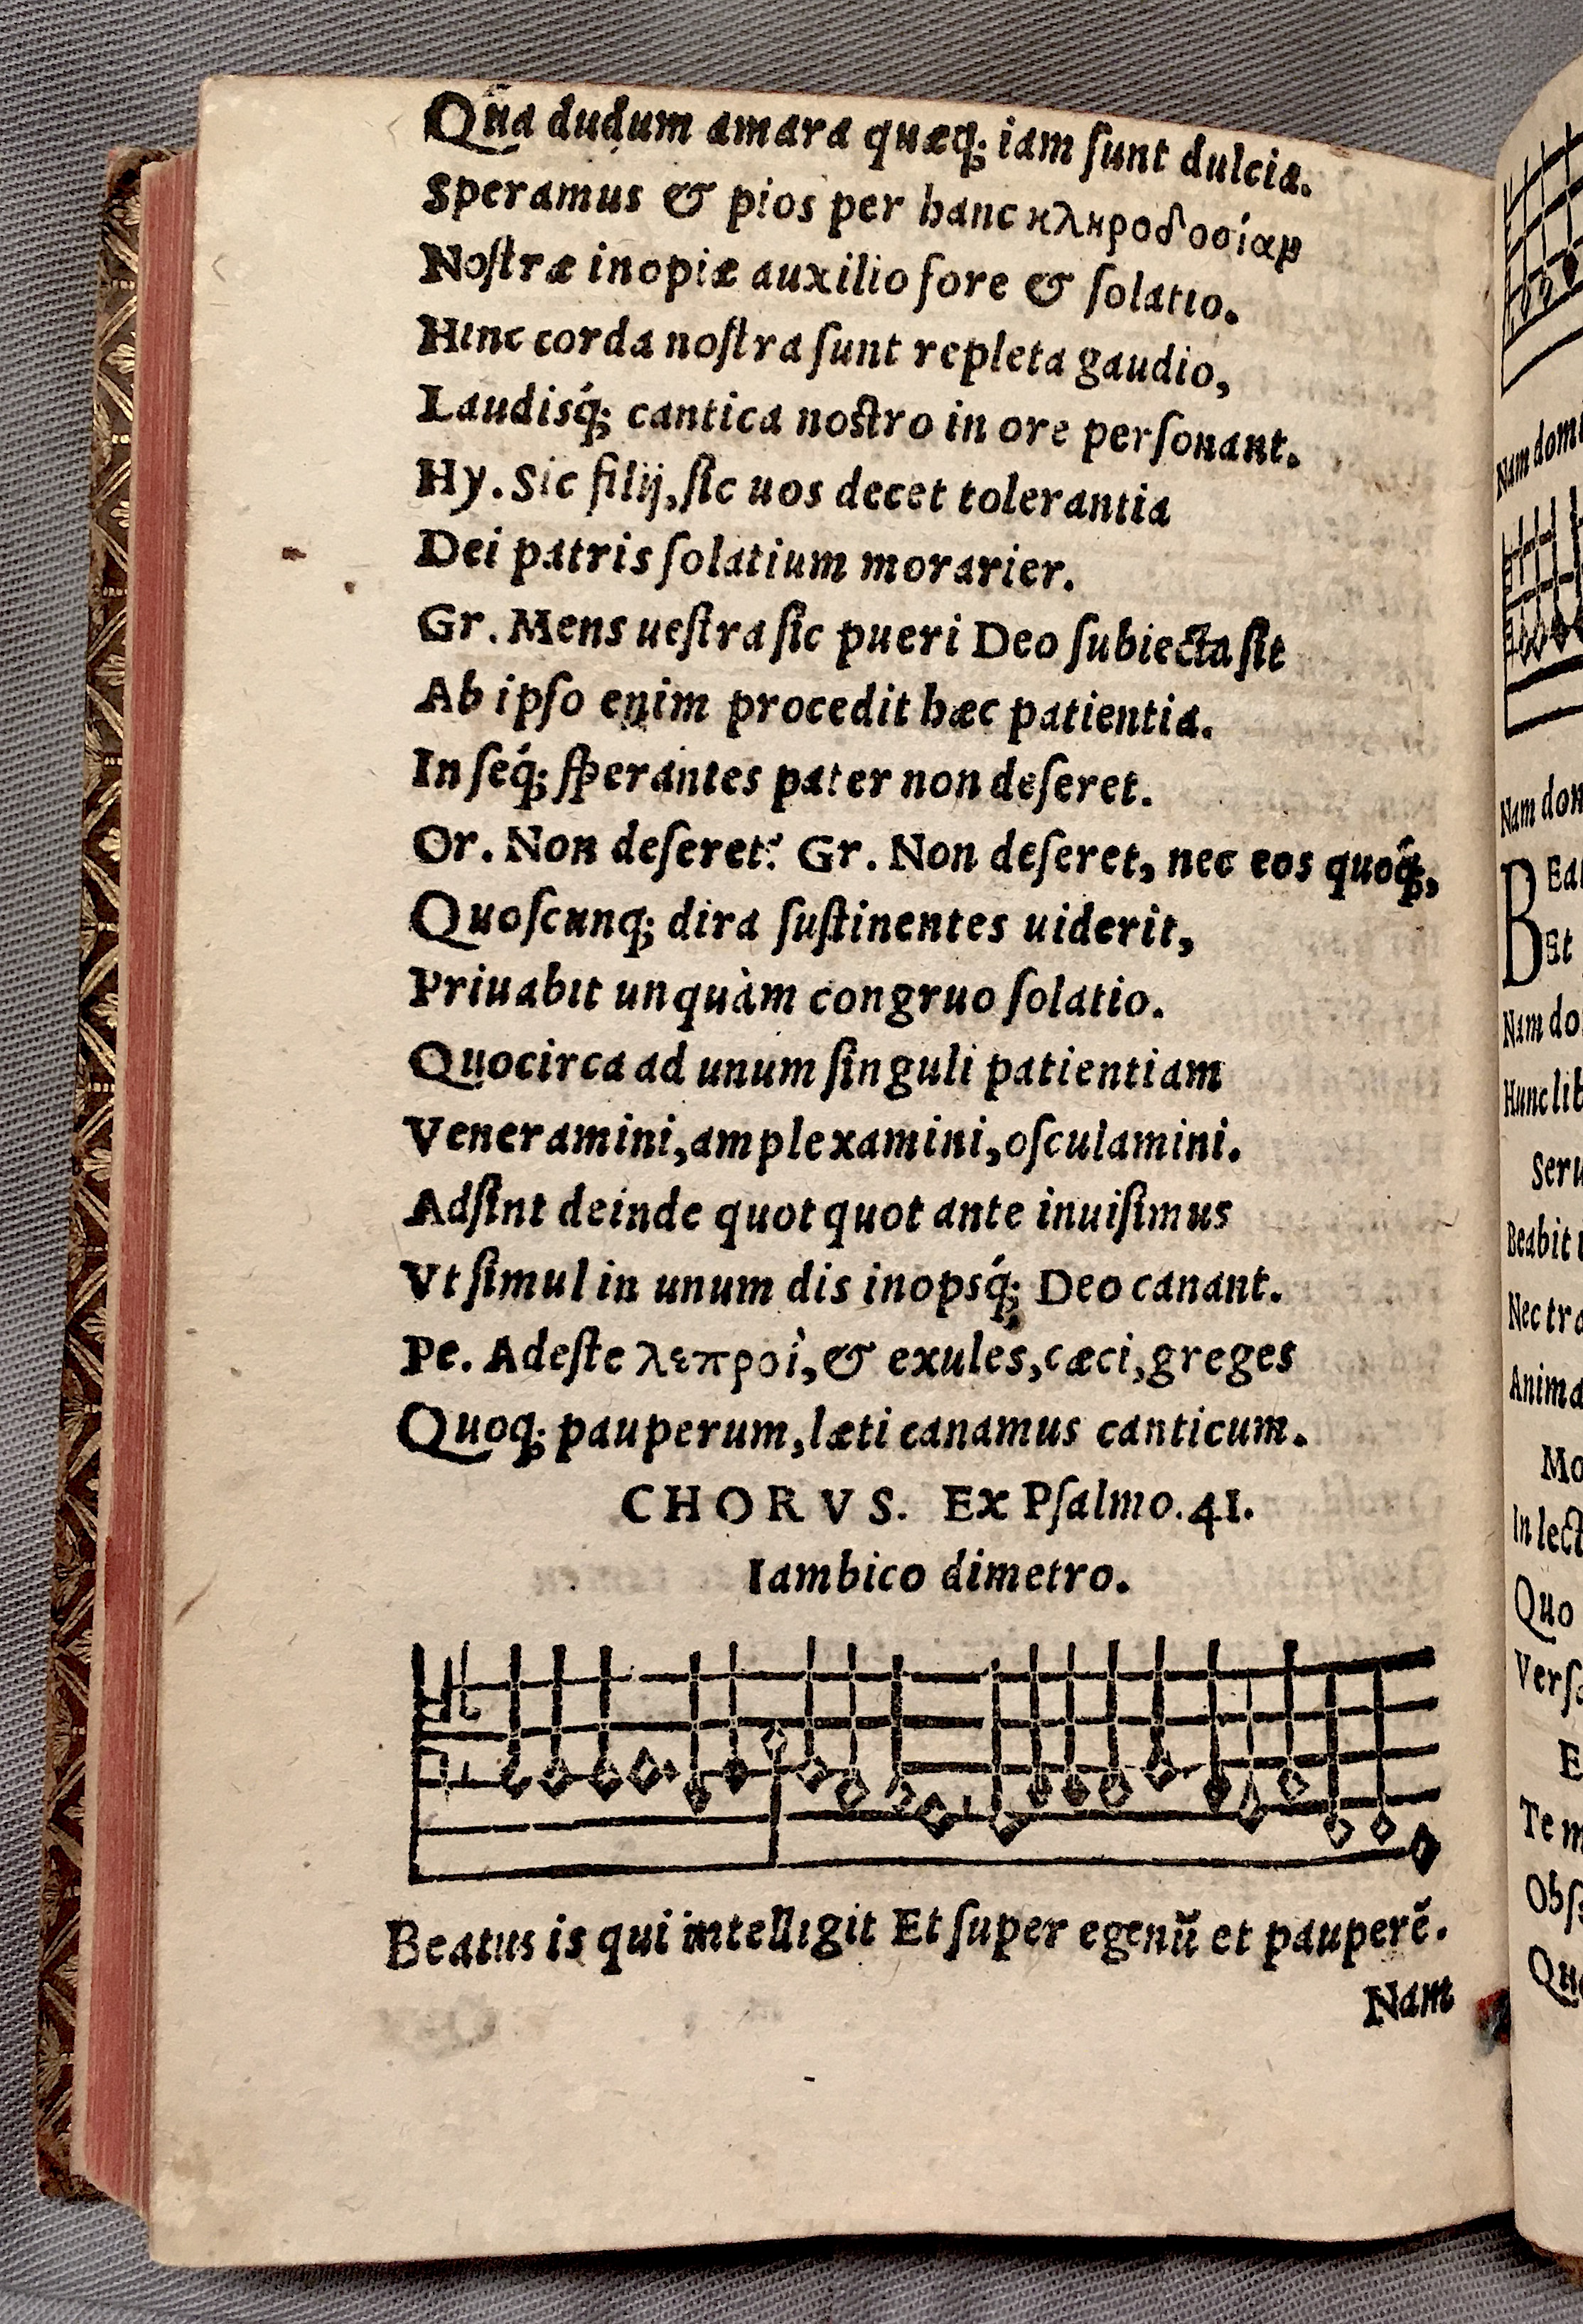 Qua dudum amara quæq; iam ſunt dulcia.
Speramus & pios per hanc κληροδοσίαμ
Noſtræ inopiæ auxilio fore & ſolatio.
Hinc corda noſtra ſunt repleta gaudio,
Laudisq́; cantica noſtro in ore perſonant.
Hy. Sic filij, ſic uos decet tolerantia
Dei patris ſolatium morarier.
Gr. Mens ueſtra ſic pueri Deo ſubiecta ſit
Ab ipſo enim procedit hæc patientia.
In ſeq́; ſperantes pater non deſeret.
Or. Non deſeret? Gr. Non deſeret, nec eos quoq́;,
Quoſcunq; dira ſuſtinentes uiderit,
Priuabit unquàm congruo ſolatio.
Quocirca ad unum ſinguli patientiam
Veneramini, amplexamini, oſculamini.
Adſint deinde quot quot ante inuiſimus
Vt ſimul in unum dis inopsq́; Deo canant.
Pe. Adeſte λεπροὶ, & exules, cæci, greges
Quoq; pauperum, læti canamus canticum.
CHORVS. Ex Pſalmo. 41.
Iambico dimetro.
Beatus is qui intelligit Et ſuper egenũ et pauperẽ.
Nam
Nam domi
Nam dom
BEat
Et
Nam do
Hunc lib
Seru
Beabit
Nec tra
Anima
Mo
In lect
Quo
Verſa
E
Te m
Obſ
Qu